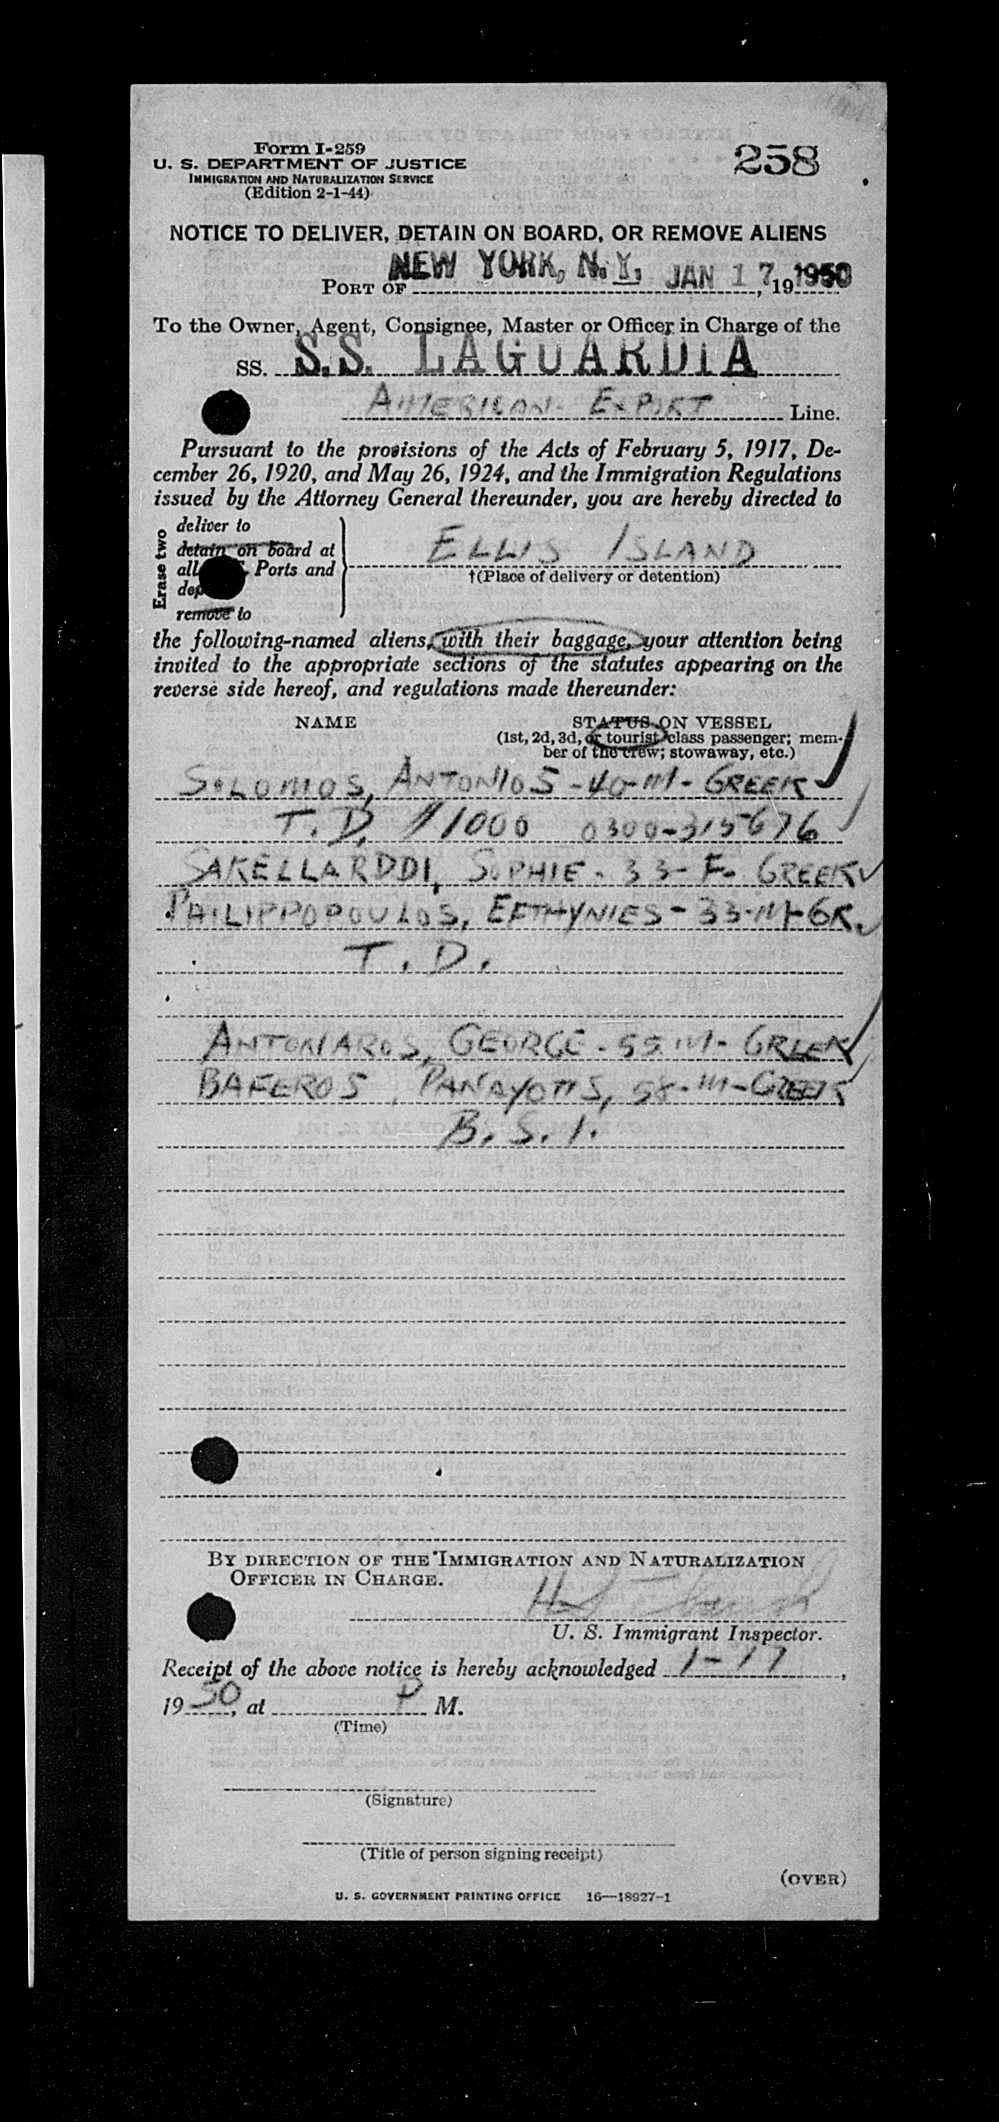 Form I-259
U. S. DEPARTMENT OF JUSTICE
IMMIGRATION AND NATURALIZATION SERVICE
(Edition 2-1-44)
258
NOTICE TO DELIVER, DETAIN ON BOARD, OR REMOVE ALIENS
PORT OF NEW YORK, N. Y., JAN 17, 19 1950
To the Owner, Agent, Consignee, Master or Officer in Charge of the
SS. S.S. LAGUARDIA
AMERICAN EXPORT Line.
Pursuant to the provisions of the Acts of February 5, 1917, De-
cember 26, 1920, and May 26, 1924, and the Immigration Regulations
issued by the Attorney General thereunder, you are hereby directed to
Erase two
deliver to
detain on board at
all Ports and
remove to
ELLIS ISLAND
†(Place of delivery or detention)
the following-named aliens, with their baggage, your attention being
invited to the appropriate sections of the statutes appearing on the
reverse side hereof, and regulations made thereunder:
NAME
STATUS ON VESSEL
(1st, 2d, 3d, or tourist class passenger; mem-
ber of the crew; stowaway, etc.)
SOLOMOS, ANTONIOS - 40-M - GREEK
T. D. $1000 0300-315676
SAKELLARDDI, SOPHIE - 33 - F. GREEK
PHILIPPOPOULOS, EFTHYNIES - 33-M-GR.
T. D.
ANTONIAROS, GEORGE - 55 M - GREEK
BAFEROS, PANAYOTIS, 58-M-GREEK
B. S. I.
BY DIRECTION OF THE IMMIGRATION AND NATURALIZATION
OFFICER IN CHARGE.
U. S. Immigrant Inspector.
Receipt of the above notice is hereby acknowledged 1-17,
19 50, at P M.
(Time)
(Signature)
(Title of person signing receipt)
(OVER)
U. S. GOVERNMENT PRINTING OFFICE 16—18927-1